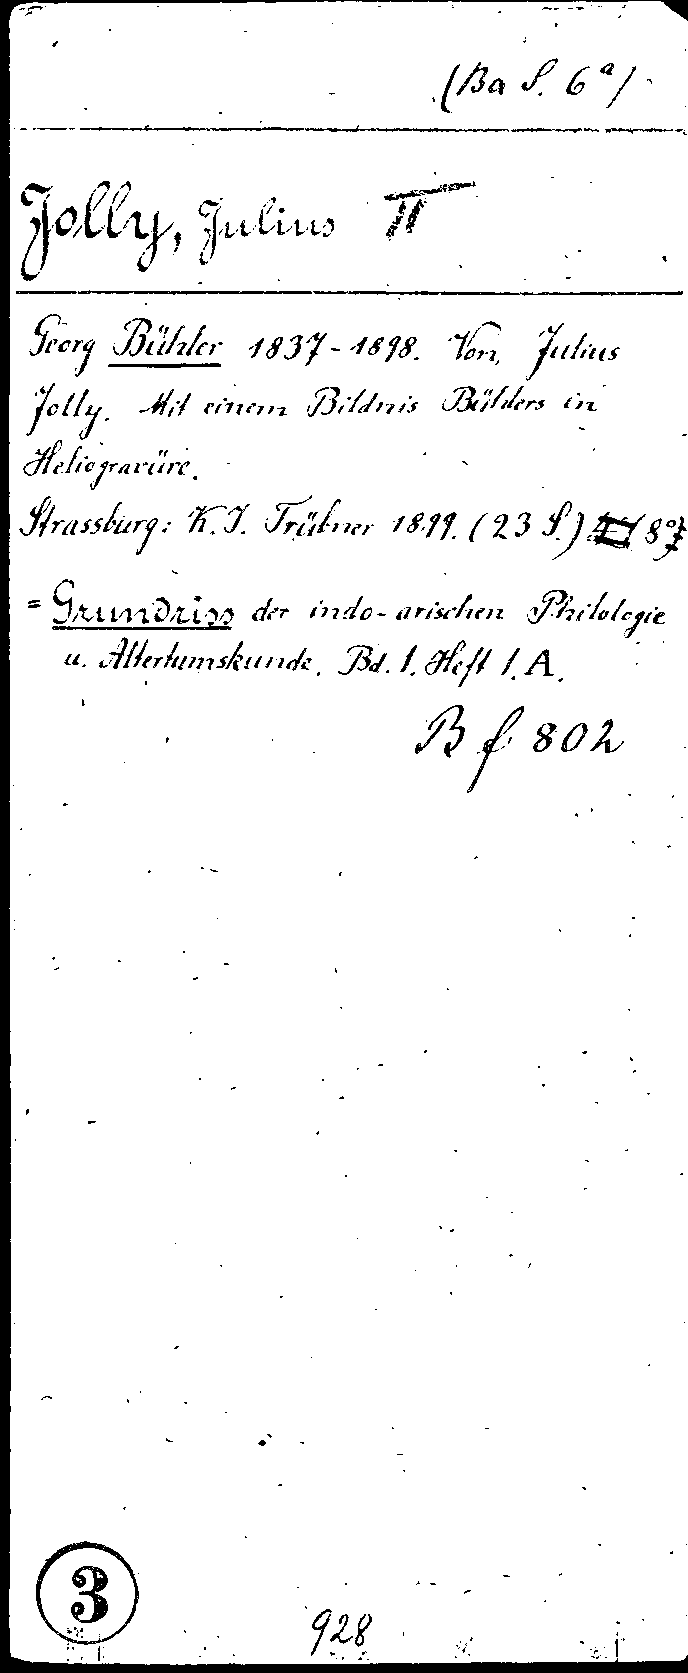 (Ba S. 6a)
Jolly, Julius II
Georg Bühler 1837-1898. Von Julius
Jolly. Mit einem Bildnis Bühlers in
Heliogravüre.
Strassburg: K. J. Trübner 1899. (23 S.) (8°)
= Grundriss der indo-arischen Philologie
u. Altertumskunde. Bd. 1. Heft 1. A.
Bf 802
3
928